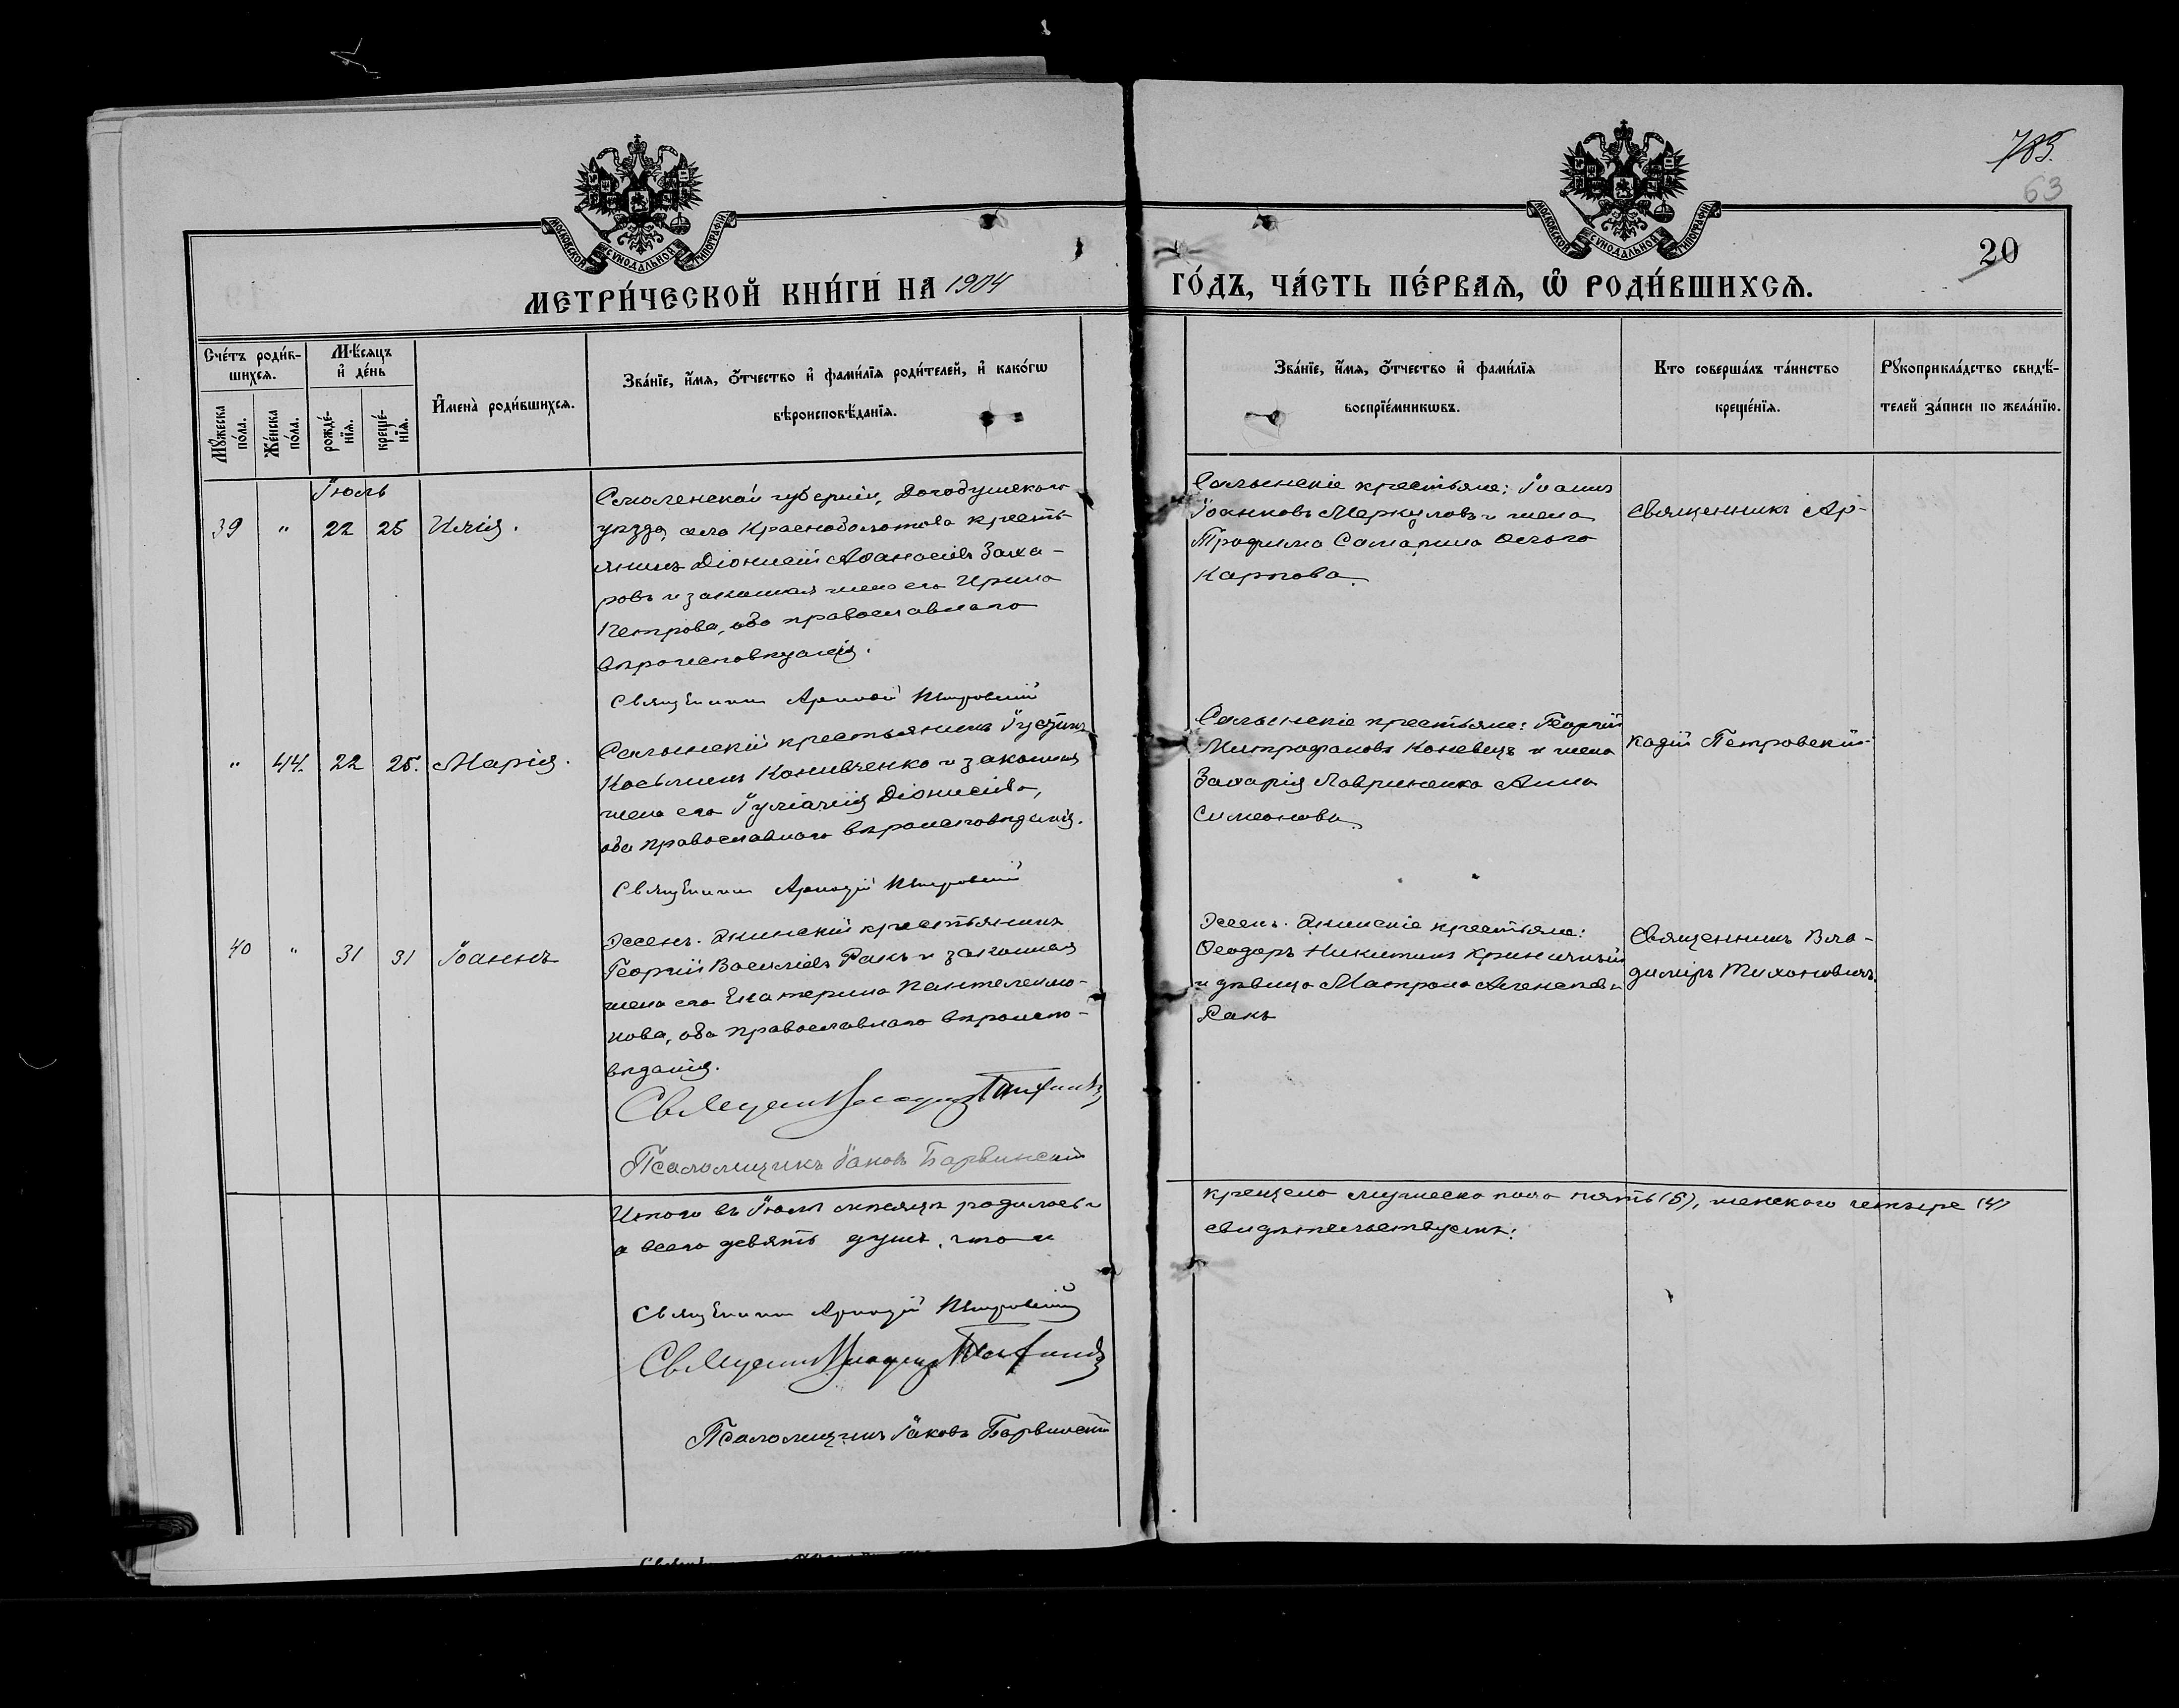 785.
63
20
МОСКОВСКОЙ СУНОДАЛЬНОЙ ТИПОГРАФІИ
МОСКОВСКОЙ СУНОДАЛЬНОЙ ТИПОГРАФІИ
МЕТРИ́ЧЕСКОЙ КНИ́ГИ НА 1904
ГО́ДЪ, ЧА́СТЬ ПЕ́РВАѦ, Ѽ РОДИ́ВШИХСѦ.
Сче́тъ роди́в-
шихсѧ.
Мꙋ́жеска по́ла.
Же́нска по́ла.
Мѣ́сѧцъ
и҆ де́нь
рожде́-
нїѧ.
креще́-
нїѧ.
И҆мена̀ роди́вшихсѧ.
Зва́нїе, и҆́мѧ, ѻ҆́тчество и҆ фами́лїѧ роди́телей, и҆ како́гѡ
вѣроисповѣ́данїѧ.
Зва́нїе, и҆́мѧ, ѻ҆́тчество и҆ фами́лїѧ
воспрїе́мникѡвъ.
Кто соверша́лъ та́инство
креще́нїѧ.
Рꙋкоприкла́дство свидѣ́-
телей за́писи по жела́нїю.
Іюль
39 " 22 25 Илія.
Смоленской губерніи, Догобушскаго
уѣзда, села Красноболотова кресть-
янинъ Діонисій Аѳанасіевъ Заха-
ровъ и законная жена его Ирина
Петрова, оба православнаго
вѣроисповѣданія.
Священникъ Аркадій Петровскій
крестьяне: Іоаннъ
Іоанновъ Меркуловъ и жена
Трофима Самарина
Карпова.
Священникъ Ар-
" 44. 22 25. Марія.
крестьянинъ Іустинъ
Косьминъ Конивченко и законная
жена его Іуліанія Діонисіева,
оба православнаго вѣроисповѣданія.
Священникъ Аркадій Петровскій
крестьяне: Георгій
Митрофановъ Коневецъ и жена
Захарія Лавриненко Анна
Симеонова.
кадій Петровскій
40 " 31 31 Іоаннъ
крестьянинъ
Георгій Василіевъ Ракъ и законная
жена его Екатерина Пантелеимо-
нова, оба православнаго вѣроиспо-
вѣданія.
Псаломщикъ Іаковъ Барвинскій
крестьяне:
Ѳеодоръ Никитинъ Криничный
и дѣвица Матрона
Ракъ
Священникъ Вла-
диміръ Тихоновичъ
Итого въ Іюлѣ мѣсяцѣ родилось и
крещено мужеска пола пять (5), женскаго четыре (4)
а всего девять душъ, что и
свидѣтельствуемъ:
Священникъ Аркадій Петровскій
Псаломщикъ Іаковъ Барвинскій